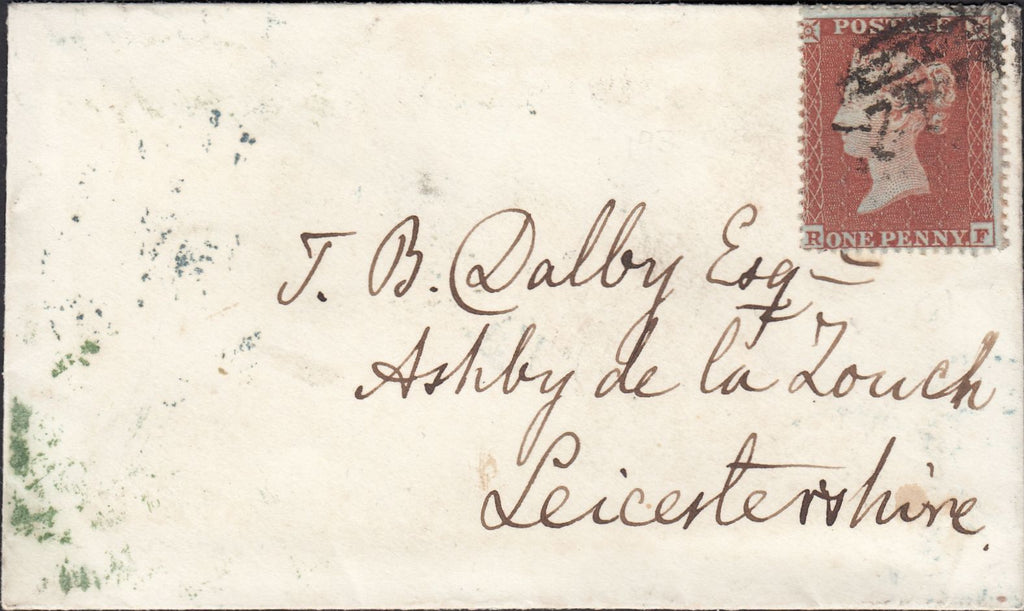 POSTAGE
R ONE PENNY. F
T. B. Dalby Esq
Ashby de la Zouch
Leicestershire.